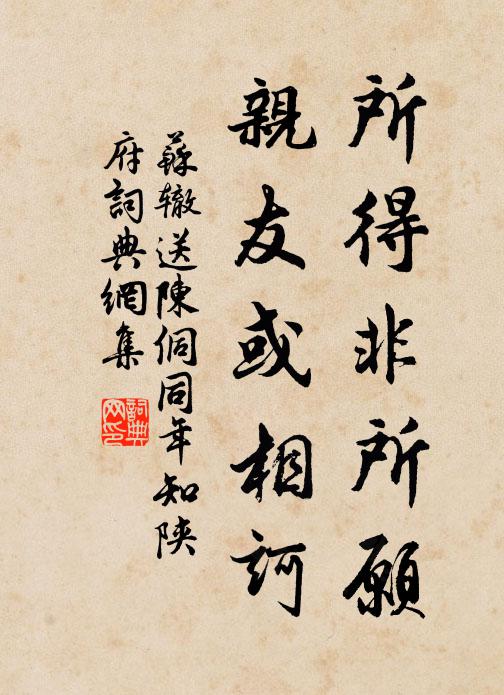 所得非所願
親友或相訶
蘇辙送陳侗同年知陝
府詞典網集
詞典
网印